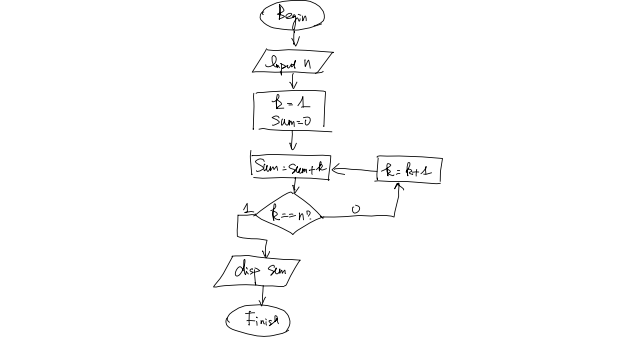 Begin
Input n
k=1
Sum=0
Sum=sum+k
k=k+1
k==n?
1
0
disp sum
Finish